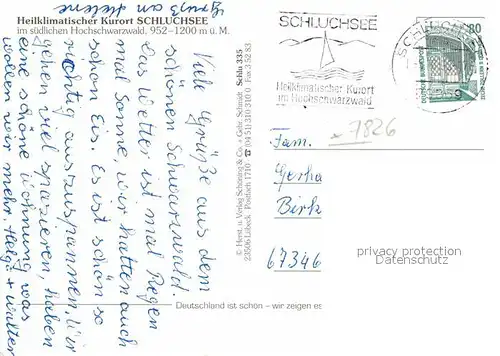 Gruß an Helene
Heilklimatischer Kurort SCHLUCHSEE
im südlichen Hochschwarzwald, 952–1200 m ü. M.
Viele Grüße aus dem
schönen Schwarzwald.
Das Wetter ist mal Regen
mal Sonne, wir hatten auch
schon Eis. Es ist schön so
richtig auszuspannen, wir
gehen viel spazieren, haben
eine schöne Wohnung was
wollen wir mehr. Helga + Walter
Schlu 335
© Herst. u. Verlag Schöning & Co. + Gebr. Schmidt
23506 Lübeck Postfach 1710
SCHLUCHSEE
Heilklimatischer Kurort
im Hochschwarzwald
SCHLUCHSEE
80
DEUTSCHE BUNDESPOST
7826
Fam.
Gerha
Birk
67346
privacy protection
Datenschutz
Deutschland ist schön – wir zeigen es